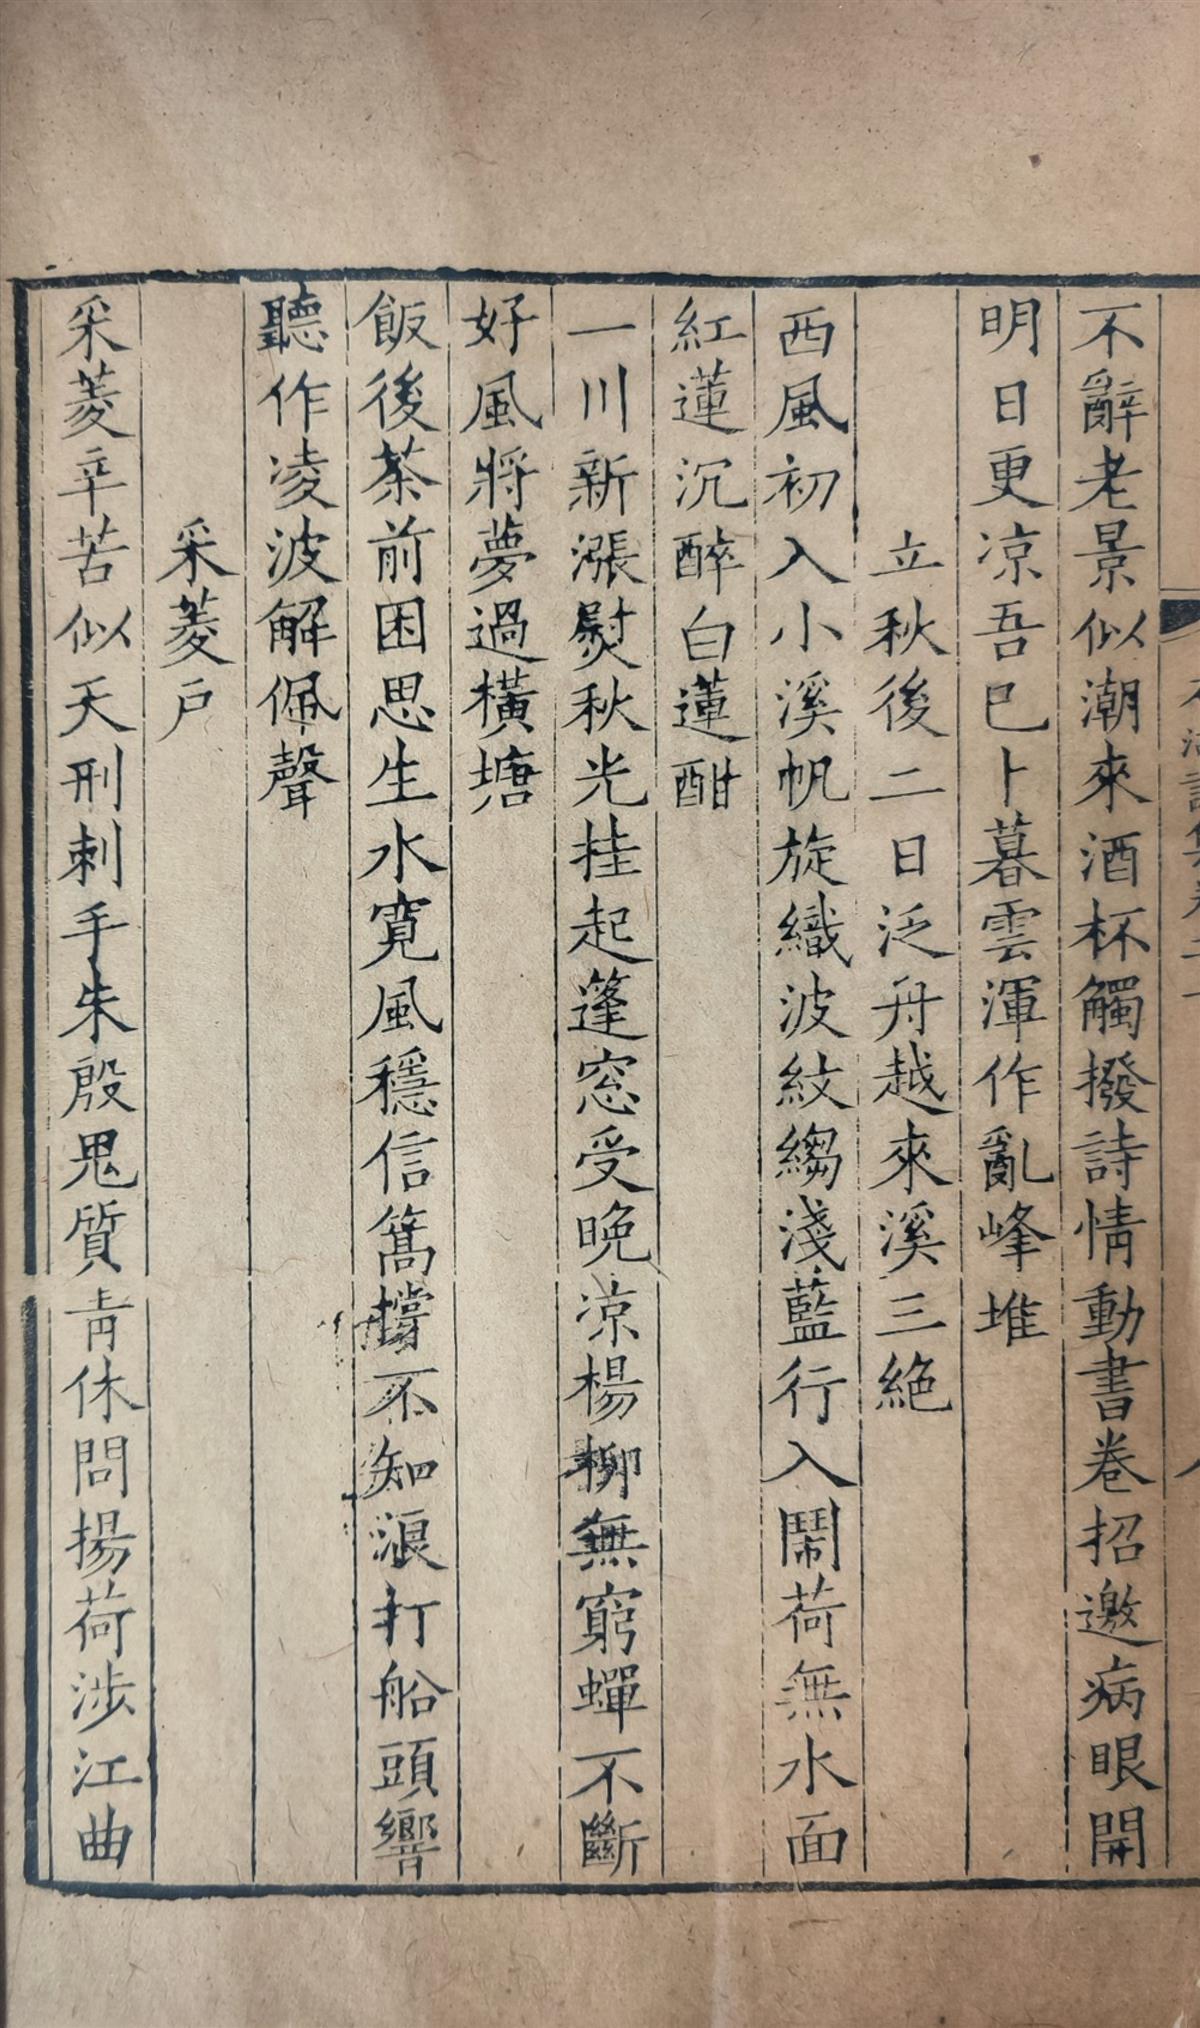 不辭老景似潮來酒杯觸撥詩情動書卷招邀病眼開
明日更凉吾已卜暮雲渾作亂峰堆
立秋後二日泛舟越來溪三絶
西風初入小溪帆旋織波紋縐淺藍行入鬧荷無水面
紅蓮沉醉白蓮酣
一川新漲熨秋光挂起篷窓受晚凉楊柳無窮蟬不斷
好風將夢過橫塘
飯後茶前困思生水寛風穩信篙撐不知浪打船頭響
聽作凌波解佩聲
采菱戸
采菱辛苦似天刑刺手朱殷鬼質靑休問揚荷涉江曲